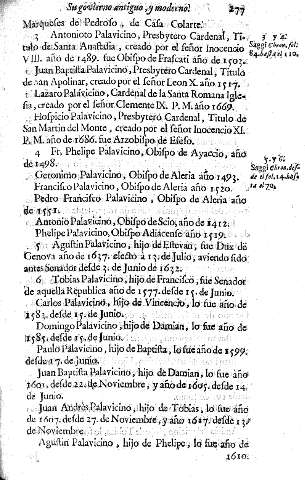 Su govierno antiguo, y moderno. 277
Marqueses de Pedroso, de Casa Colarte.
3 Antonioto Palavicino, Presbytero Cardenal, Ti-
tulo de Santa Anastasia, creado por el señor Inocencio
VIII. año de 1489. fue Obispo de Frascati año de 1503.
Juan Baptista Palavicino, Presbytero Cardenal, Titulo
de San Apolinar, creado por el señor Leon X. año 1517.
Lazaro Palavicino, Cardenal de la Santa Romana Igle-
sia, creado por el señor Clemente IX. P. M. año 1669.
Hospicio Palavicino, Presbytero Cardenal, Titulo de
San Martin del Monte, creado por el señor Inocencio XI.
P. M. año de 1686. fue Arzobispo de Efeso.
4 Fr. Phelipe Palavicino, Obispo de Ayaccio, año
de 1498.
Geronimo Palavicino, Obispo de Aleria año 1493.
Francisco Palavicino, Obispo de Aleria año 1520.
Pedro Francisco Palavicino, Obispo de Aleria año
de 1551.
Antonio Palavicino, Obispo de Scio, año de 1412.
Phelipe Palavicino, Obispo Adiacense año 1519.
5 Agustin Palavicino, hijo de Estevan, fue Dux de
Genova año de 1637. electo a 13. de Julio, aviendo sido
antes Senador desde 3. de Junio de 1632.
6 Tobias Palavicino, hijo de Francisco, fue Senador
de aquella Republica año de 1577. desde 15. de Junio.
Carlos Palavicino, hijo de Vincencio, lo fue año de
1583. desde 15. de Junio.
Domingo Palavicino, hijo de Damian, lo fue año de
1585. desde 15. de Junio.
Paulo Palavicino, hijo de Baptista, lo fue año de 1599.
desde 17. de Junio.
Juan Baptista Palavicino, hijo de Damian, lo fue año
1601. desde 22. de Noviembre, y año de 1605. desde 14.
de Junio.
Juan Andrès Palavicino, hijo de Tobias, lo fue año
de 1607. desde 27. de Noviembre, y año 1617. desde 13.
de Noviembre.
Agustin Palavicino, hijo de Phelipe, lo fue año de
1610.
3. y 4.
Saggi Chron. fol.
5. y 6.
Saggi Chron. des-